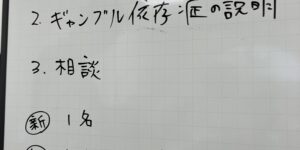 2. ギャンブル依存症の説明
3. 相談
新 1名